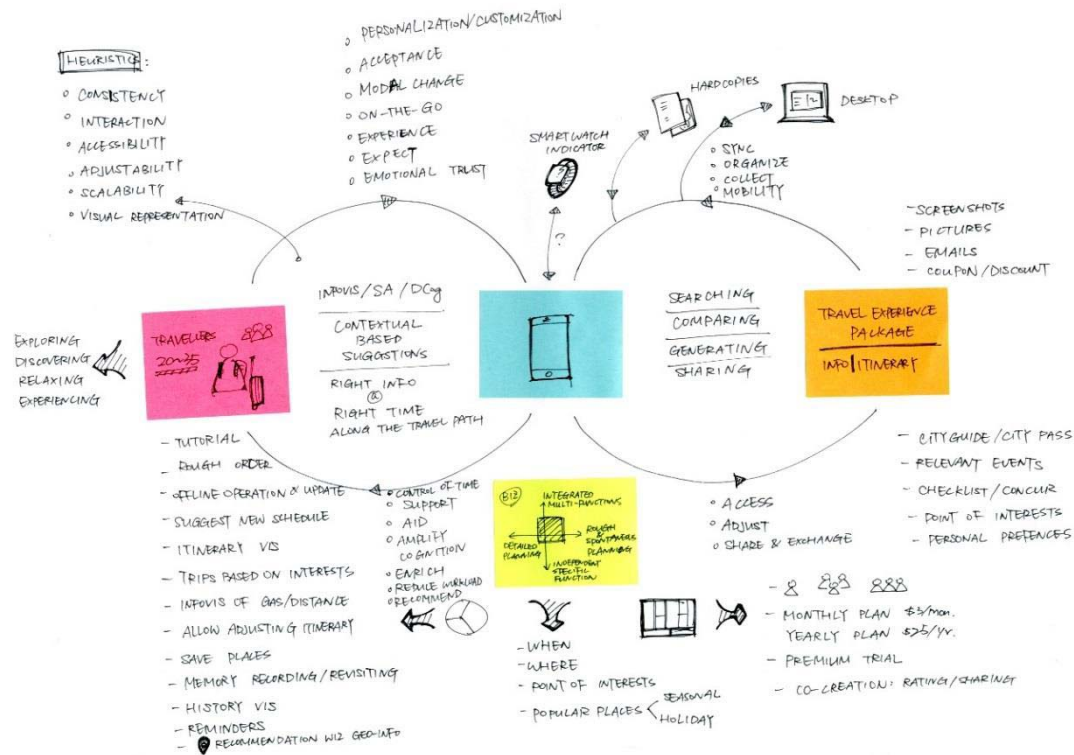 HEURISTICS:
CONSISTENCY
INTERACTION
ACCESSIBILITY
ADJUSTABILITY
SCALABILITY
VISUAL REPRESENTATION
PERSONALIZATION/CUSTOMIZATION
ACCEPTANCE
MODAL CHANGE
ON-THE-GO
EXPERIENCE
EXPECT
EMOTIONAL TRUST
SMARTWATCH
INDICATOR
?
HARDCOPIES
DESKTOP
SYNC
ORGANIZE
COLLECT
MOBILITY
- SCREENSHOTS
- PICTURES
- EMAILS
- COUPON/DISCOUNT
EXPLORING
DISCOVERING
RELAXING
EXPERIENCING
TRAVELLERS
20~35
INFOVIS/SA/DCog
CONTEXTUAL
BASED
SUGGESTIONS
RIGHT INFO
@
RIGHT TIME
ALONG THE TRAVEL PATH
SEARCHING
COMPARING
GENERATING
SHARING
TRAVEL EXPERIENCE
PACKAGE
INFO/ITINERARY
- TUTORIAL
- ROUGH ORDER
- OFFLINE OPERATION & UPDATE
- SUGGEST NEW SCHEDULE
- ITINERARY VIS
- TRIPS BASED ON INTERESTS
- INFOVIS OF GAS/DISTANCE
- ALLOW ADJUSTING ITINERARY
- SAVE PLACES
- MEMORY RECORDING/REVISITING
- HISTORY VIS
- REMINDERS
- RECOMMENDATION WIZ GEO-INFO
CONTROL OF TIME
SUPPORT
AID
AMPLIFY
COGNITION
ENRICH
REDUCE WORKLOAD
RECOMMEND
BIZ
INTEGRATED
MULTI-FUNCTIONS
DETAILED
PLANNING
ROUGH
&
SPONTANEOUS
PLANNING
INDEPENDENT
SPECIFIC
FUNCTION
ACCESS
ADJUST
SHARE & EXCHANGE
- CITY GUIDE/CITY PASS
- RELEVANT EVENTS
- CHECKLIST/CONCUR
- POINT OF INTERESTS
- PERSONAL PREFENCES
- WHEN
- WHERE
- POINT OF INTERESTS
- POPULAR PLACES < SEASONAL
HOLIDAY
- MONTHLY PLAN $3/mon.
YEARLY PLAN $25/yr.
- PREMIUM TRIAL
- CO-CREATION: RATING/SHARING